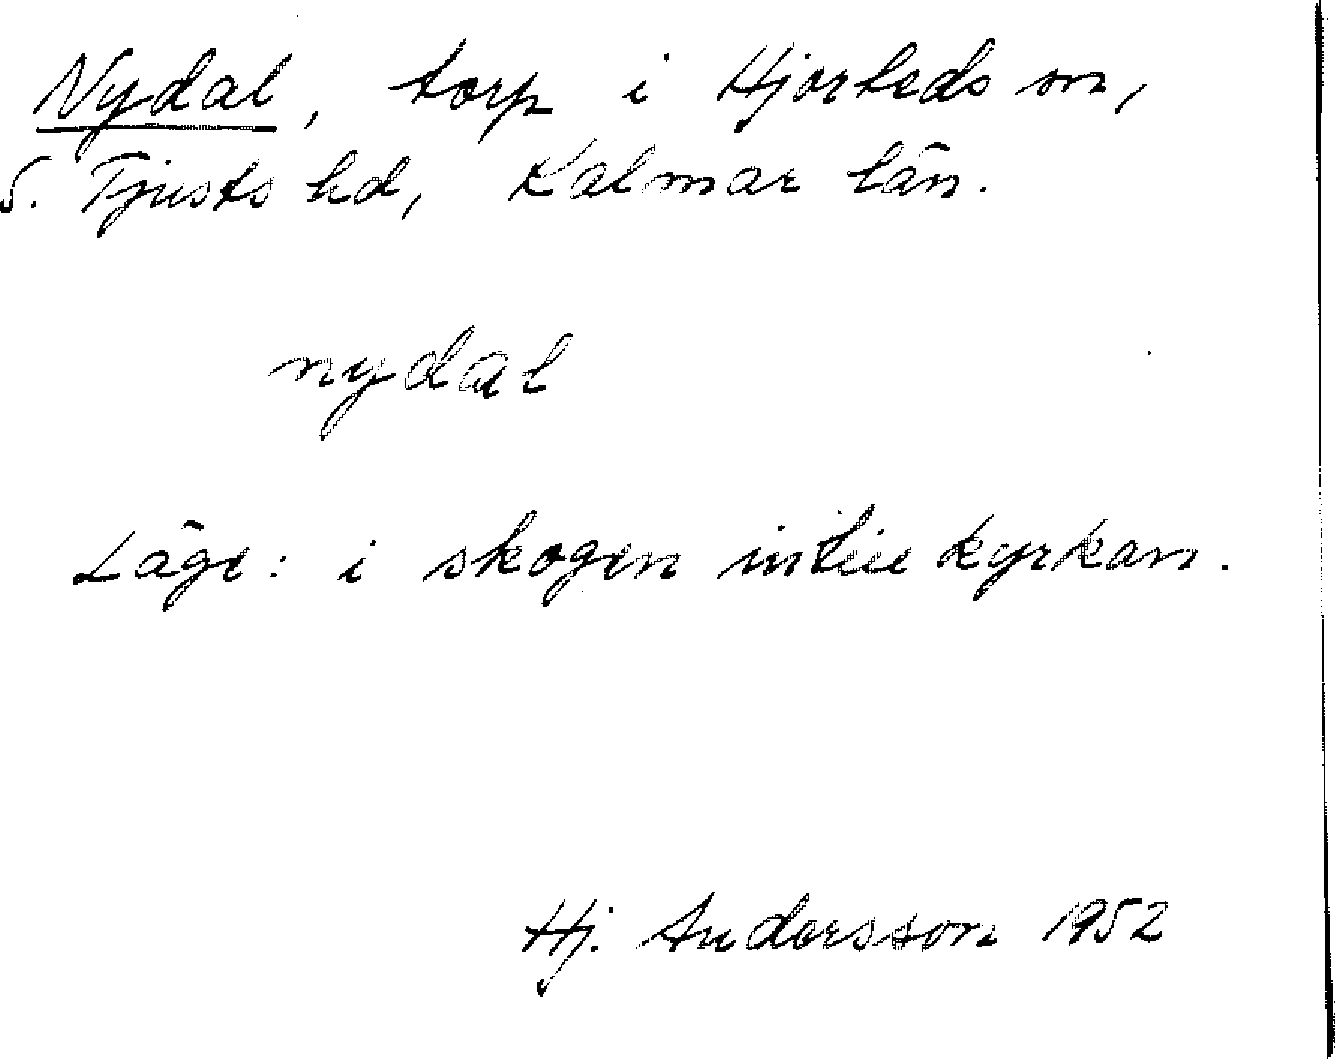 Nydal, torp i Hjorteds sn,
S. Tjusts hd, Kalmar län.
nydal
Läge: i skogen intill kyrkan.
Hj. Andersson 1952